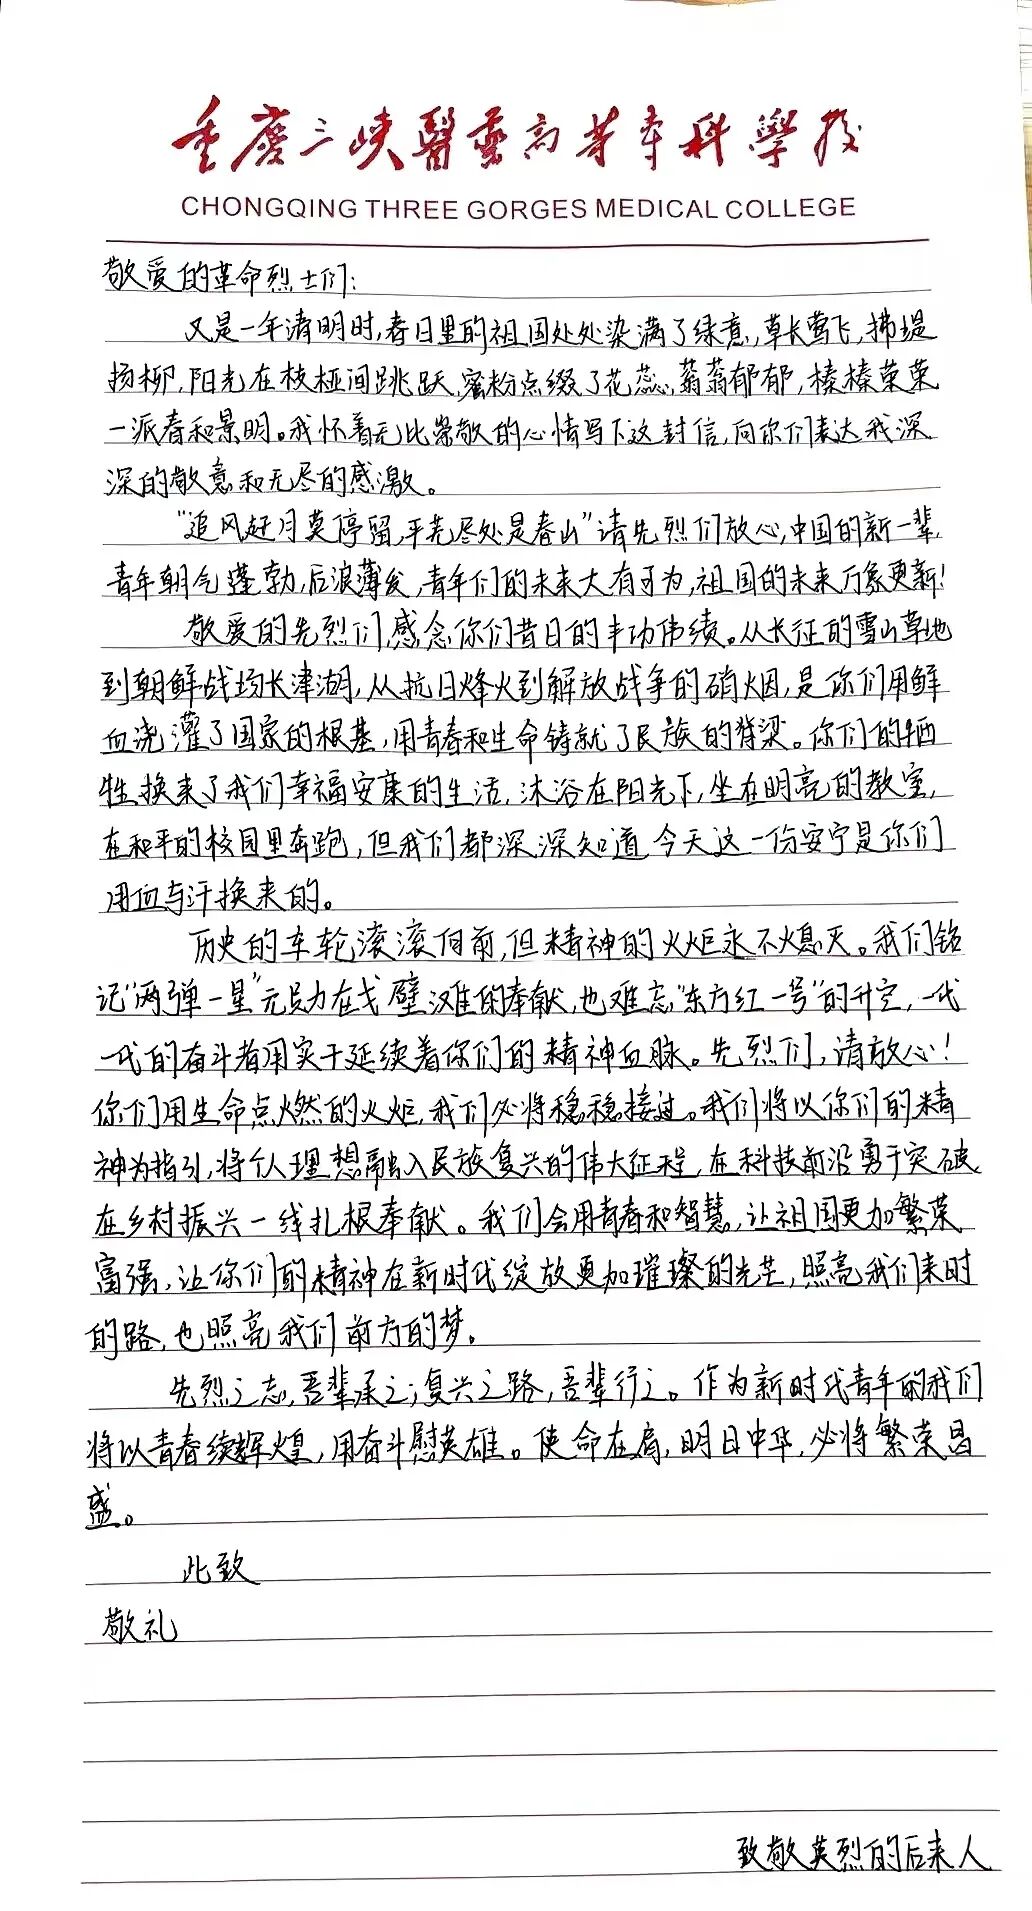 重慶三峡醫药高等专科學校
CHONGQING THREE GORGES MEDICAL COLLEGE
敬爱的革命烈士们:
又是一年清明时,春日里的祖国处处染满了绿意,草长莺飞,拂堤
扬柳,阳光在枝桠间跳跃,蜜粉点缀了花蕊,蓊蓊郁郁,榛榛荣荣
一派春和景明。我怀着无比崇敬的心情写下这封信,向你们表达我深
深的敬意和无尽的感激。
“追风赶月莫停留,平芜尽处是春山”请先烈们放心,中国的新一辈,
青年朝气蓬勃,后浪薄发,青年们的未来大有可为,祖国的未来万象更新!
敬爱的先烈们,感念你们昔日的丰功伟绩。从长征的雪山草地
到朝鲜战场长津湖,从抗日烽火到解放战争的硝烟,是你们用鲜
血浇灌了国家的根基,用青春和生命铸就了民族的脊梁。你们的牺
牲换来了我们幸福安康的生活,沐浴在阳光下,坐在明亮的教室,
在和平的校园里奔跑,但我们都深深知道,今天这一份安宁是你们
用血与汗换来的。
历史的车轮滚滚向前,但精神的火炬永不熄灭。我们铭
记“两弹一星”元勋在戈壁滩的奉献,也难忘“东方红一号”的升空,一代
一代的奋斗者用实干延续着你们的精神血脉。先烈们,请放心!
你们用生命点燃的火炬,我们必将稳稳接过。我们将以你们的精
神为指引,将个人理想融入民族复兴的伟大征程,在科技前沿勇于突破
在乡村振兴一线扎根奉献。我们会用青春和智慧,让祖国更加繁荣
富强,让你们的精神在新时代绽放更加璀璨的光芒,照亮我们来时
的路,也照亮我们前方的梦。
先烈之志,吾辈承之;复兴之路,吾辈行之。作为新时代青年的我们
将以青春续辉煌,用奋斗慰英雄。使命在肩,明日中华,必将繁荣昌
盛。
此致
敬礼
致敬英烈的后来人